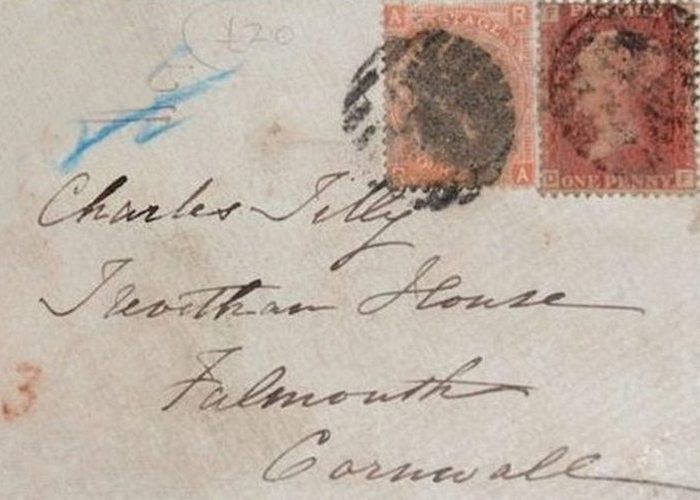 £20
A R
POSTAGE
R A
ONE PENNY
Charles Tilly
Trevithan House
Falmouth
Cornwall
3